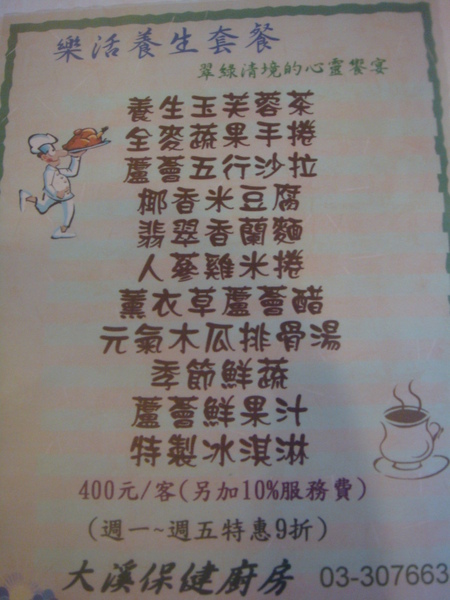 樂活養生套餐
翠綠清境的心靈饗宴
養生玉芙蓉茶
全麥蔬果手捲
蘆薈五行沙拉
椰香米豆腐
翡翠香蘭麵
人蔘雞米捲
薰衣草蘆薈醋
元氣木瓜排骨湯
季節鮮蔬
蘆薈鮮果汁
特製冰淇淋
400元/客(另加10%服務費)
(週一~週五特惠9折)
大溪保健廚房 03-307663